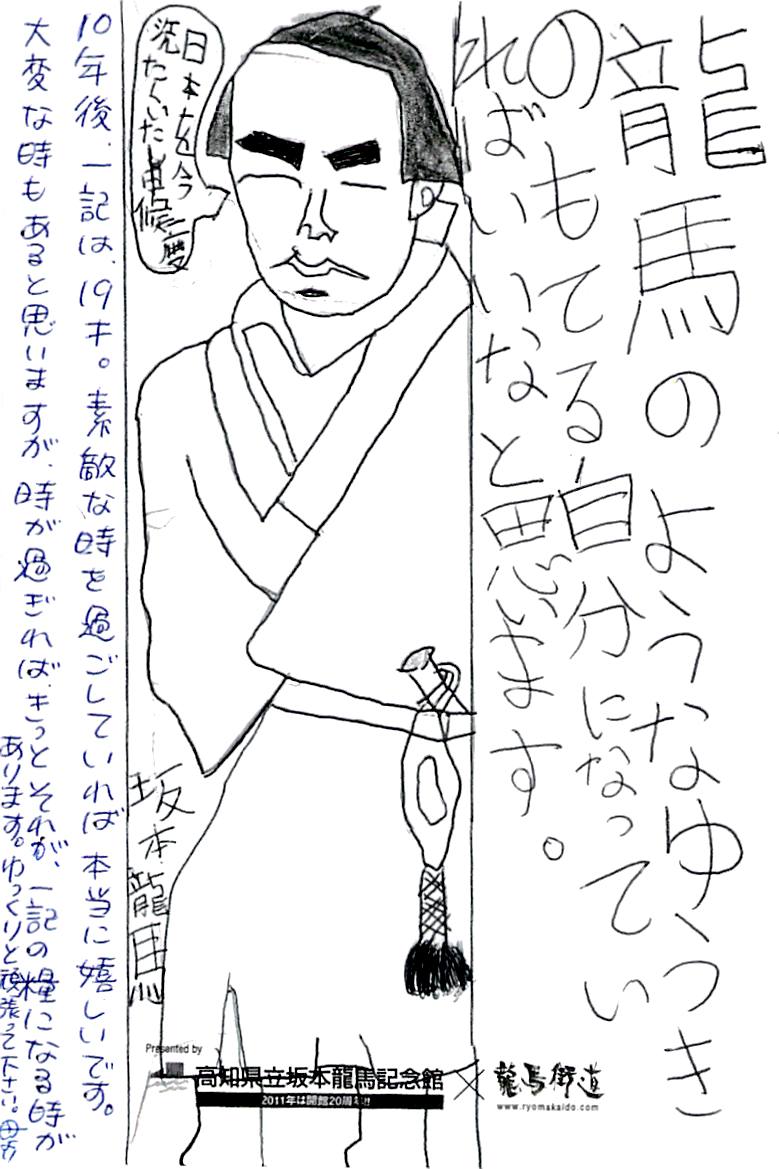 龍馬のようなゆうき
のもてる自分になってい
ればいいなと思います。
日本を今
洗たくいたし申候
坂本龍馬
10年後、一記は、19才。素敵な時を過ごしていれば本当に嬉しいです。
大変な時もあると思いますが、時が過ぎればきっとそれが、一記の糧になる時が
あります。ゆっくりと頑張って下さい。
Presented by
高知県立坂本龍馬記念館
2011年は開館20周年!!
×
龍馬街道
www.ryomakaido.com